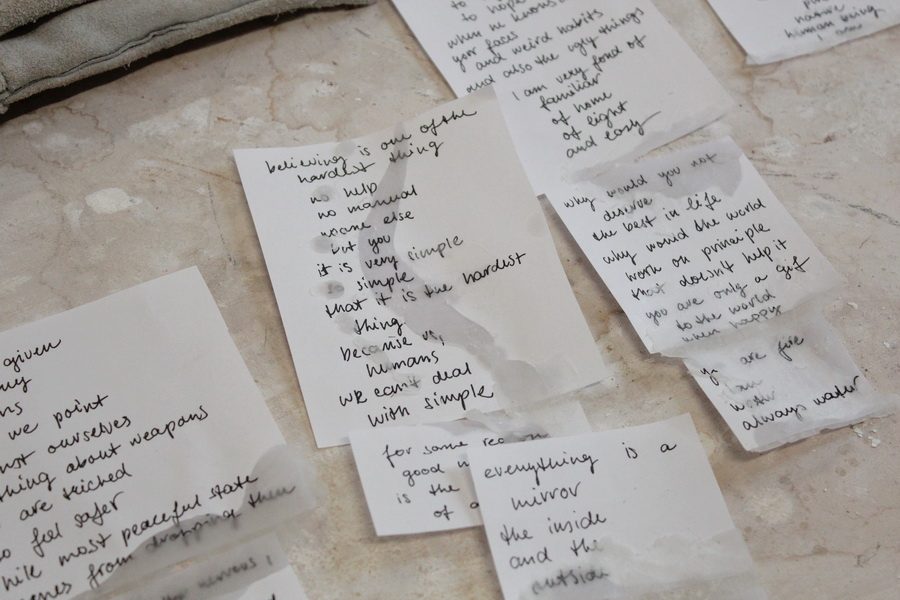 to hope
when he knows
your faces
and weird habits
and also the ugly things
I am very fond of
familiar
of home
of light
and easy
native
human being
I am
believing is one of the
hardest thing
no help
no manual
noone else
but you
it is very simple
so simple
that it is the hardest
thing
because us,
humans
we can't deal
with simple
why would you not
deserve
the best in life
why would the world
work on principle
that doesn't help it
you are only a gift
to the world
when happy
you are fire
I am
water
always water
given
we point
ourselves
about weapons
are tricked
feel safer
most peaceful state
from dropping them
nervous
for some
good
is the
of
everything is a
mirror
the inside
and the
outside